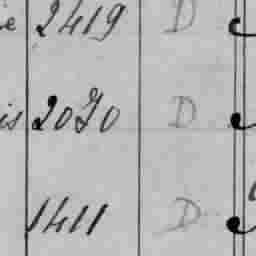 ie 2419 D
is 2070 D
1411 D